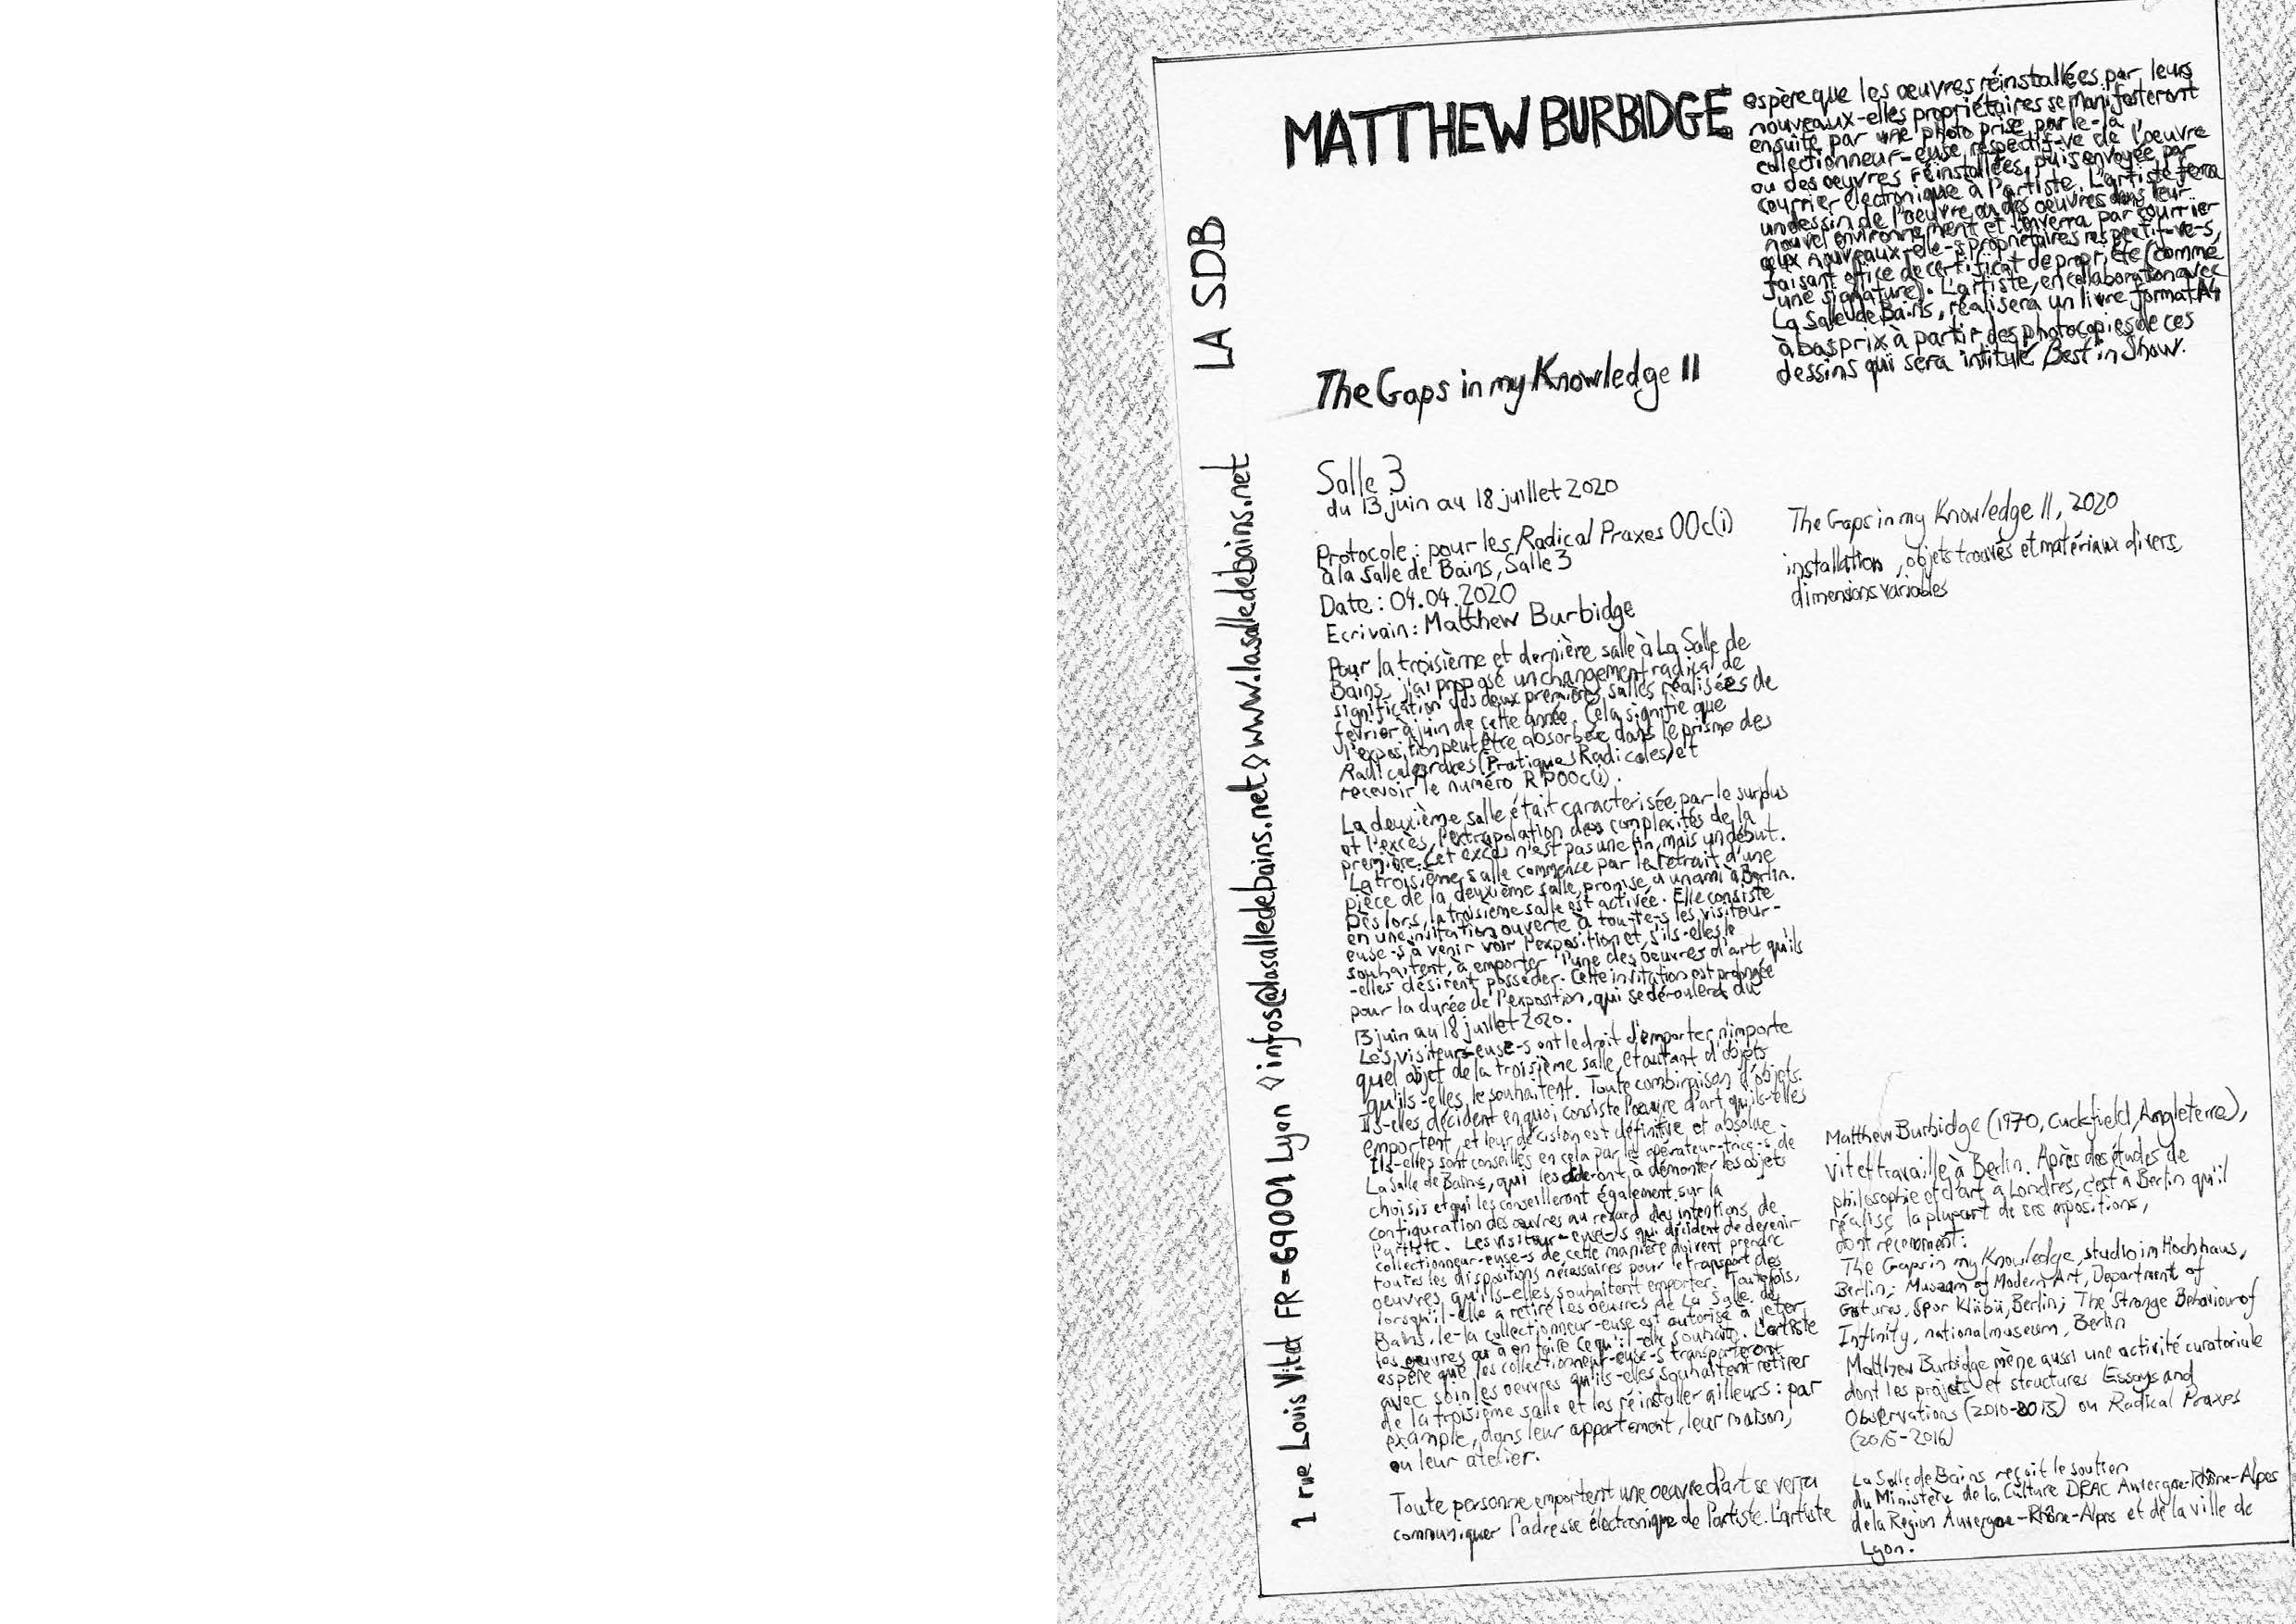 LA SDB
1 rue Louis Vitet FR-69001 Lyon ◊ infos@lasalledebains.net ◊ www.lasalledebains.net
MATTHEW BURBIDGE
The Gaps in my Knowledge II
Salle 3
du 13 juin au 18 juillet 2020
Protocole : pour les Radical Praxes 00c(i)
à la Salle de Bains, Salle 3
Date : 04.04.2020
Ecrivain : Matthew Burbidge
Pour la troisième et dernière salle à La Salle de
Bains, j'ai proposé un changement radical de
signification des deux premières salles réalisées de
février à juin de cette année. Cela signifie que
l'exposition peut être absorbée dans le prisme des
Radical Praxes (Pratiques Radicales) et
recevoir le numéro RP00c(i).
La deuxième salle était caracterisée par le surplus
et l'excès, l'extrapolation des complexités de la
première. Cet excès n'est pas une fin, mais un début.
La troisième salle commence par le retrait d'une
pièce de la deuxième salle, promise à un ami à Berlin.
Dès lors, la troisième salle est activée. Elle consiste
en une invitation ouverte à tou-te-s les visiteur-
euse-s à venir voir l'exposition et, s'ils-elles le
souhaitent, à emporter l'une des oeuvres d'art qu'ils
-elles désirent posséder. Cette invitation est prolongée
pour la durée de l'exposition, qui se déroulera du
13 juin au 18 juillet 2020.
Les visiteurs-euse-s ont le droit d'emporter n'importe
quel objet de la troisième salle, et autant d'objets
qu'ils-elles le souhaitent. Toute combinaison d'objets.
Ils-elles décident en quoi consiste l'oeuvre d'art qu'ils-elles
emportent, et leur décision est définitive et absolue.
Ils-elles sont conseillés en cela par les opérateur-trice-s de
La Salle de Bains, qui les aideront à démonter les objets
choisis et qui les conseilleront également sur la
configuration des œuvres au regard des intentions de
l'artiste. Les visiteur-euse-s qui décident de devenir
collectionneur-euse-s de cette manière doivent prendre
toutes les dispositions nécessaires pour le transport des
oeuvres qu'ils-elles souhaitent emporter. Toutefois,
lorsqu'il-elle a retiré les oeuvres de La Salle de
Bains, le-la collectionneur-euse est autorisé à jeter
les œuvres ou à en faire ce qu'il-elle souhaite. L'artiste
espère que les collectionneur-euse-s transporteront
avec soin les oeuvres qu'ils-elles souhaitent retirer
de la troisième salle et les réinstaller ailleurs : par
example, dans leur appartement, leur maison,
ou leur atelier.
Toute personne emportent une oeuvre d'art se verra
communiquer l'adresse électronique de l'artiste. L'artiste
espère que les œuvres réinstallées par leurs
nouveaux-elles propriétaires se manifesteront
ensuite par une photo prise par le-la
collectionneur-euse respectif-ve de l'oeuvre
ou des oeuvres réinstallées, puis envoyée par
courrier électronique à l'artiste. L'artiste fera
un dessin de l'oeuvre ou des oeuvres dans leur
nouvel environnement et l'enverra par courrier
aux nouveaux-elle-s propriétaires respectif-ve-s,
faisant office de certificat de propriété (comme
une signature). L'artiste, en collaboration avec
La Salle de Bains, réalisera un livre format A4
à bas prix à partir des photocopies de ces
dessins qui sera intitulé Best in Show.
The Gaps in my Knowledge II, 2020
installation, objets trouvés et matériaux divers,
dimensions variables
Matthew Burbidge (1970, Cuckfield, Angleterre),
vit et travaille à Berlin. Après des études de
philosophie et d'art à Londres, c'est à Berlin qu'il
réalise la plupart de ses expositions,
dont récemment :
The Gaps in my Knowledge, studio im Hochhaus,
Berlin; Museum of Modern Art, Department of
Gestures, Spor Klübü, Berlin; The Strange Behaviour of
Infinity, nationalmuseum, Berlin
Matthew Burbidge mène aussi une activité curatoriale
dont les projets et structures Essays and
Observations (2010-2015) ou Radical Praxes
(2015-2016)
La Salle de Bains reçoit le soutien
du Ministère de la Culture DRAC Auvergne-Rhône-Alpes
de la Région Auvergne-Rhône-Alpes et de la ville de
Lyon.